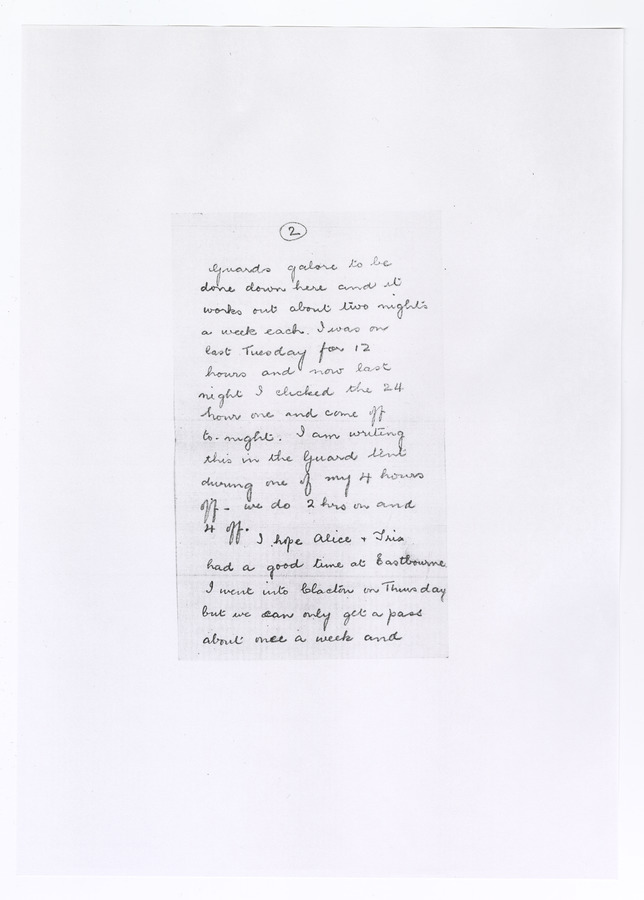 2
Guards galore to be
done down here and it
works out about two nights
a week each. I was on
last Tuesday for 12
hours and now last
night I clicked the 24
hour one and come off
to-night. I am writing
this in the Guard tent
during one of my 4 hours
off - we do 2 hrs on and
4 off. I hope Alice + Iris
had a good time at Eastbourne.
I went into Clacton on Thursday
but we can only get a pass
about once a week and